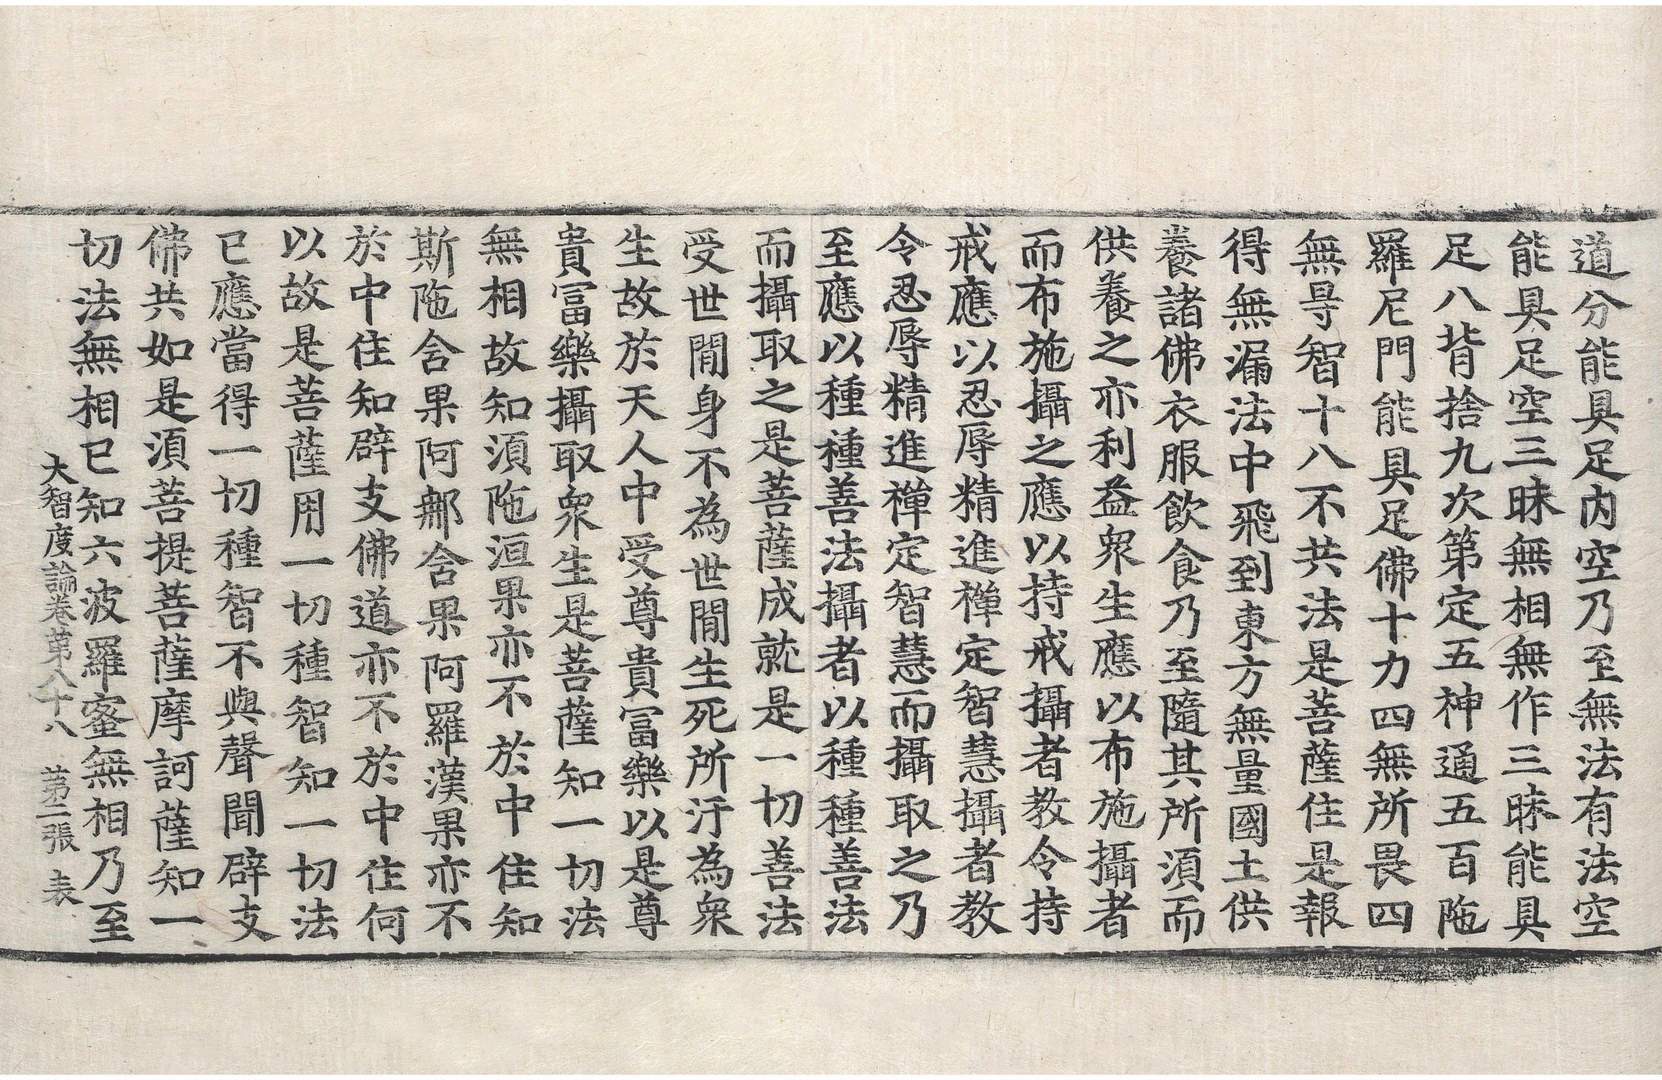 道分能具足內空乃至無法有法空
能具足空三昧無相無作三昧能具
足八背捨九次第定五神通五百陁
羅尼門能具足佛十力四無所畏四
無㝵智十八不共法是菩薩住是報
得無漏法中飛到東方無量國土供
養諸佛衣服飲食乃至隨其所須而
供養之亦利益衆生應以布施攝者
而布施攝之應以持戒攝者教令持
戒應以忍辱精進禪定智慧攝者教
令忍辱精進禪定智慧而攝取之乃
至應以種種善法攝者以種種善法
而攝取之是菩薩成就是一切善法
受世間身不為世間生死所汙為衆
生故於天人中受尊貴冨樂以是尊
貴冨樂攝取衆生是菩薩知一切法
無相故知須陁洹果亦不於中住知
斯陁含果阿那含果阿羅漢果亦不
於中住知辟支佛道亦不於中住何
以故是菩薩用一切種智知一切法
已應當得一切種智不與聲聞辟支
佛共如是須菩提菩薩摩訶薩知一
切法無相已知六波羅蜜無相乃至
大智度論卷第八十八 第二張 表